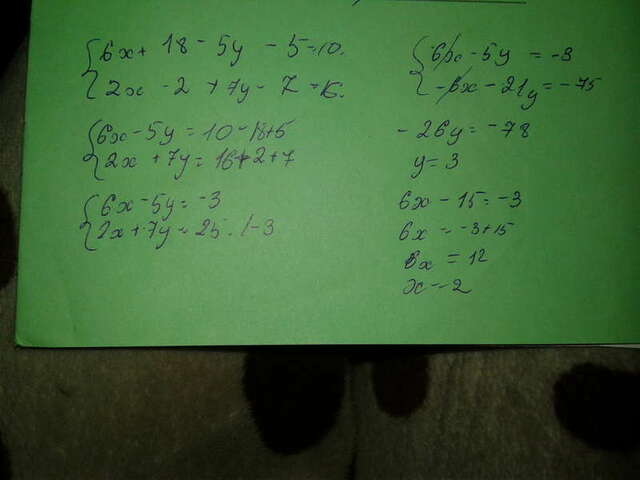 {6x + 18 - 5y - 5 = 10.
{2x - 2 + 7y - 7 = 16.
{6x - 5y = 10 - 18 + 5
{2x + 7y = 16 + 2 + 7
{6x - 5y = -3
{2x + 7y = 25. |-3
{6x - 5y = -3
{-6x - 21y = -75
-26y = -78
y = 3
6x - 15 = -3
6x = -3 + 15
6x = 12
x = 2